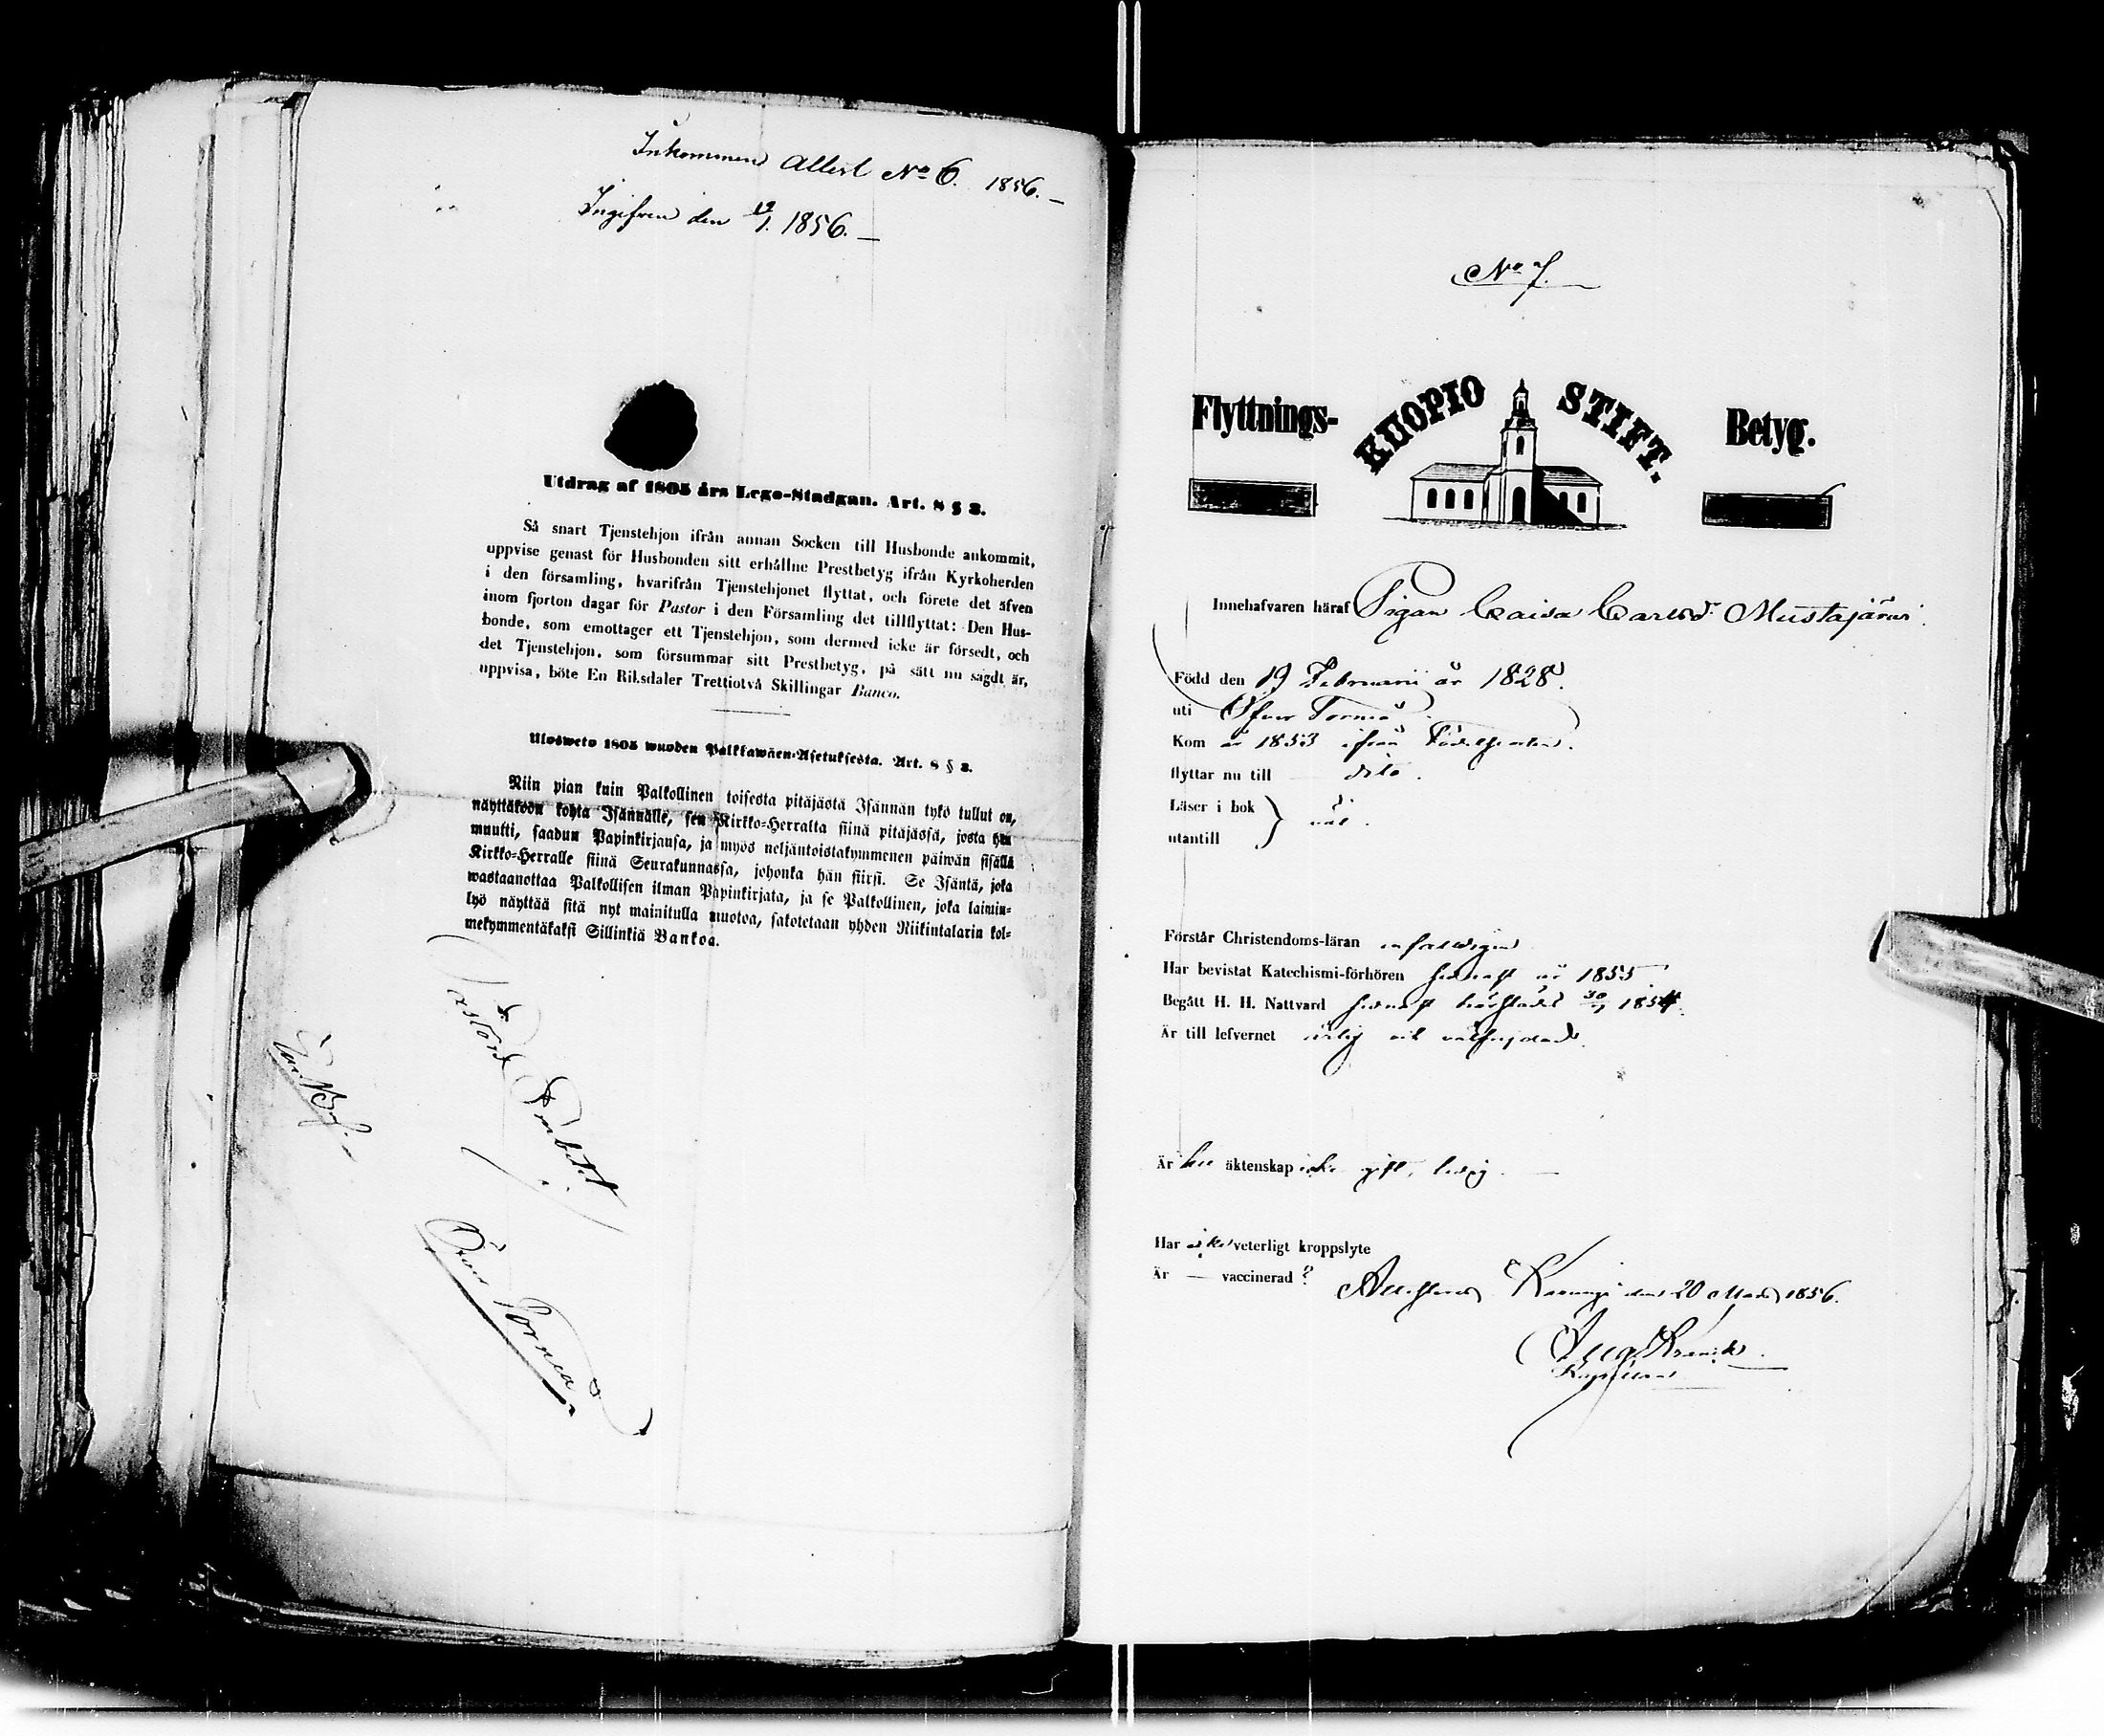 Inkommen Attest No 6. 1856.
Ingifven den 19/1. 1856.
Utdrag af 1805 års Lego-Stadgan. Art. 8 § 3.
Så snart Tjenstehjon ifrån annan Socken till Husbonde ankommit,
uppvise genast för Husbonden sitt erhållne Prestbetyg ifrån Kyrkoherden
i den församling, hvarifrån Tjenstehjonet flyttat, och förete det äfven
inom fjorton dagar för Pastor i den Församling det tillflyttat: Den Hus-
bonde, som emottager ett Tjenstehjon, som dermed icke är försedt, och
det Tjenstehjon, som försummar sitt Prestbetyg, på sätt nu sagdt är,
uppvisa, böte En Riksdaler Trettiotvå Skillingar Banco.
Uloswetо 1805 wuoden Palkkawäen-Asetuksesta. Art. 8 § 3.
Niin pian kuin Palkollinen toisesta pitäjästä Isännän tykö tullut on,
näyttäköön kohta Isännälle, sen Kirkko-Herralta siinä pitäjässä, josta hän
muutti, saadun Papinkirjansa, ja myös neljäntoistakymmenen päiwän sisällä
Kirkko-Herralle siinä Seurakunnassa, johonka hän siirsi. Se Isäntä, joka
wastaanottaa Palkollisen ilman Papinkirjata, ja se Palkollinen, joka laimin-
lyö näyttää sitä nyt mainitulla muotoa, sakotetaan yhden Riikintalarin kol-
mekymmentäkaksi Sillinkiä Bankoa.
Pastors Embetet
Öfver Torneå
No 7.
Flyttnings- KUOPIO STIFT. Betyg.
Innehafvaren häraf Pigan Caisa Carlsdr Mustajärvi
Född den 19 Februarii år 1828.
uti Öfver Torneå
Kom år 1853 ifrån Födelseorten.
flyttar nu till dito.
Läser i bok } väl.
utantill
Förstår Christendoms-läran enfaldigt
Har bevistat Katechismi-förhören senast år 1855
Begått H. H. Nattvard senast härstädes 1854.
Är till lefvernet ärlig och välfrejdad.
Är äktenskap icke gift, ledig.
Har icke veterligt kroppslyte
Är — vaccinerad? Attesterar Karungi den 20 Mars 1856.
Kapellan